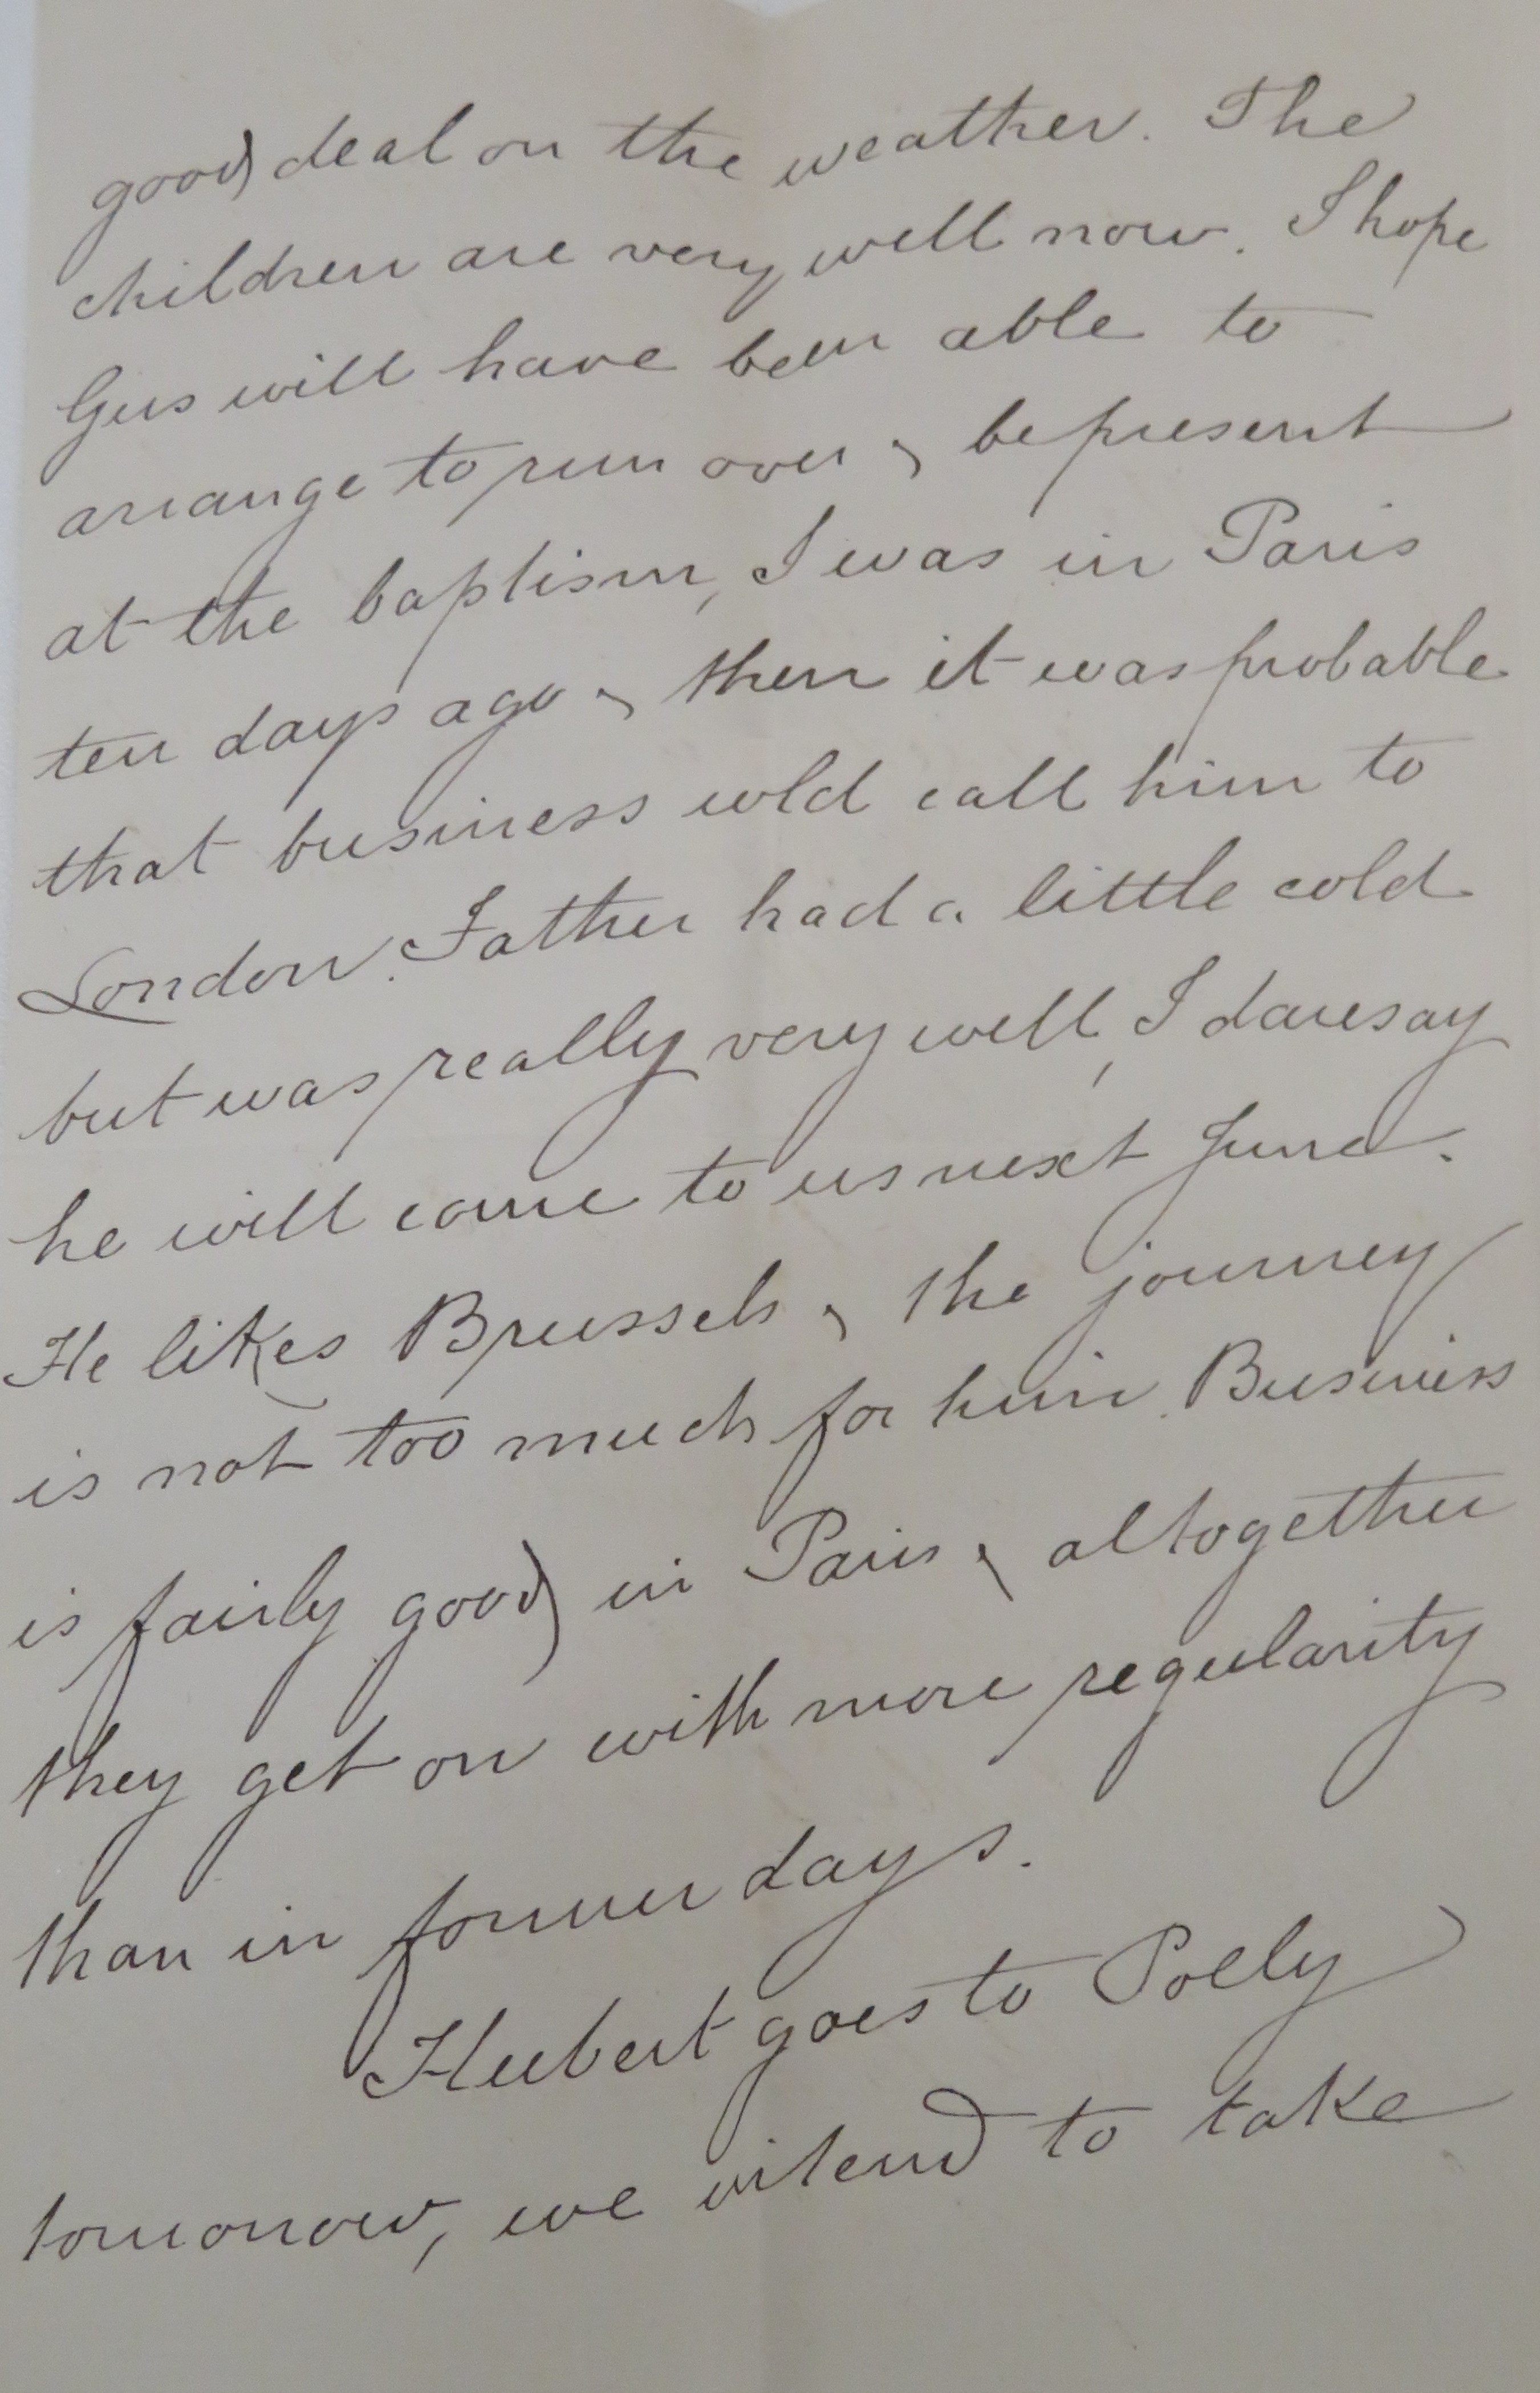 good deal on the weather. The
children are very well now. I hope
Gus will have been able to
arrange to run over & be present
at the baptism, I was in Paris
ten days ago & then it was probable
that business wld call him to
London. Father had a little cold
but was really very well, I daresay
he will come to us next June.
He likes Brussels & the journey
is not too much for him. Business
is fairly good in Paris & altogether
they get on with more regularity
than in former days.
Hubert goes to Polly
tomorrow, we intend to take